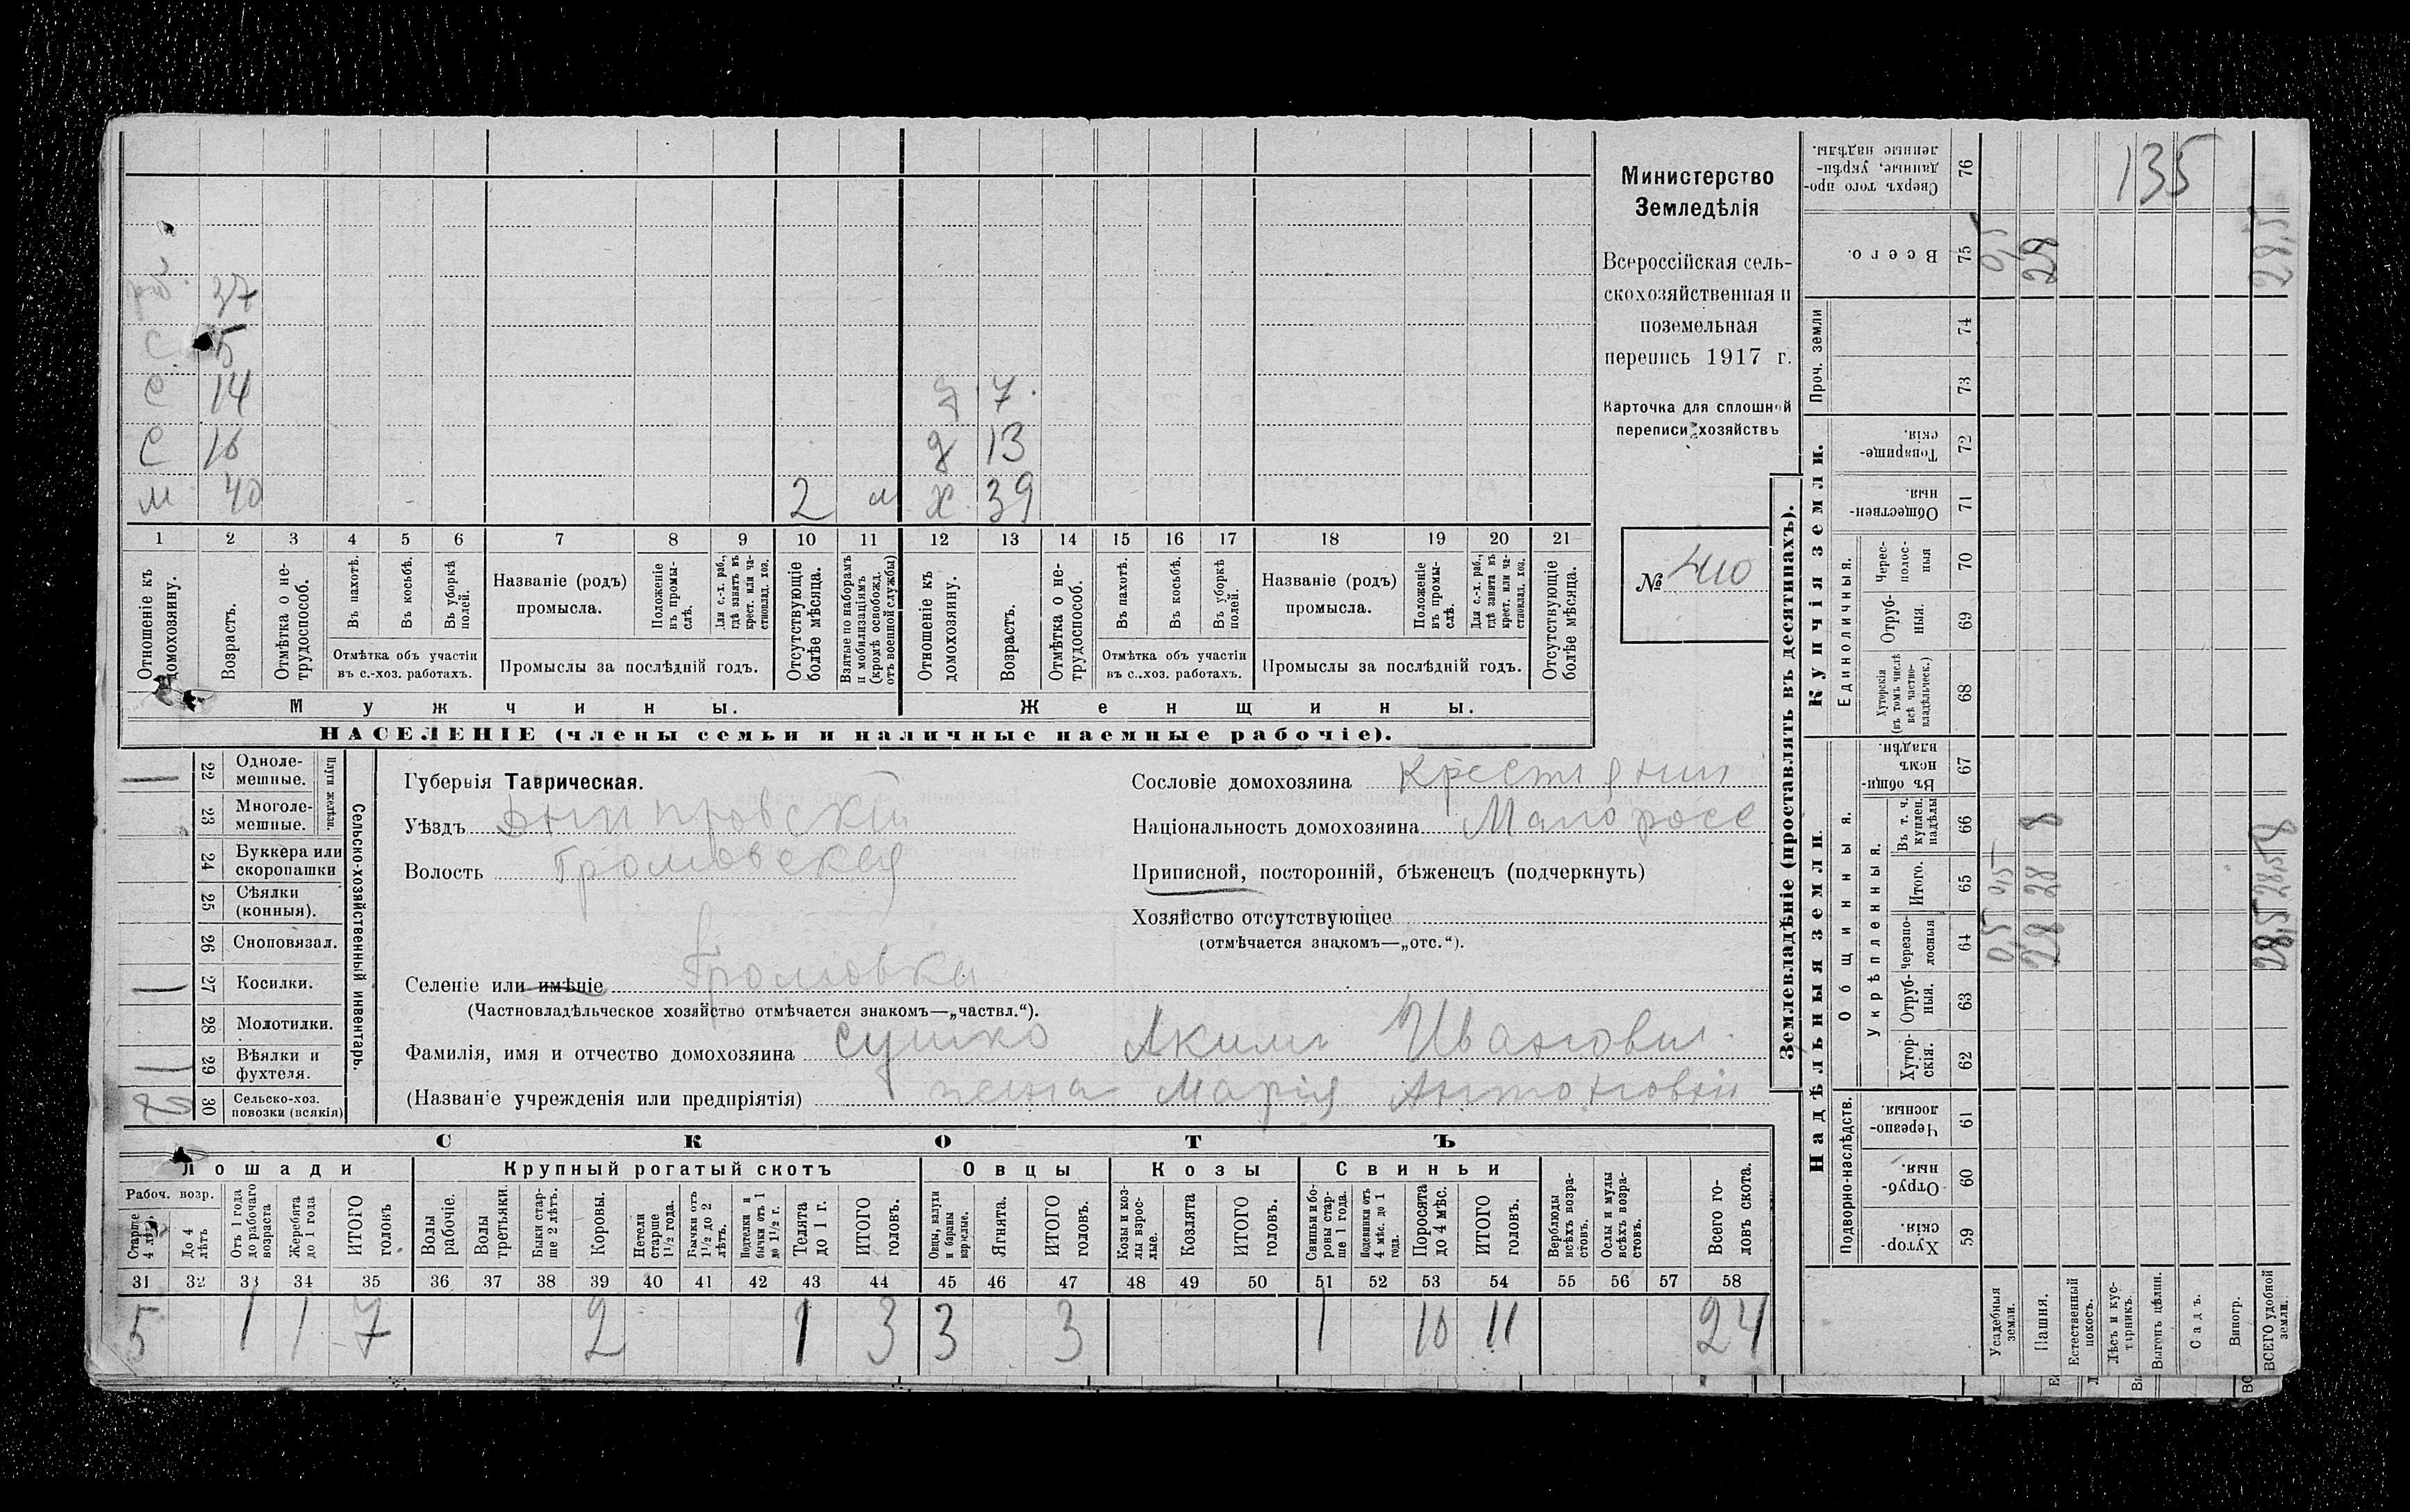 37
С 5
С 14 д 7
С 16 д 13
м 40 2 м х 39
1 2 3 4 5 6 7 8 9 10 11 12 13 14 15 16 17 18 19 20 21
Отношеніе къ домохозяину.
Возрастъ.
Отмѣтка о не-трудоспособ.
Въ пахотѣ.
Въ косьбѣ.
Въ уборкѣ полей.
Отмѣтка объ участіи
въ с.-хоз. работахъ.
Названіе (родъ)
промысла.
Положеніе въ промы-слѣ.
Для с.-х. раб., гдѣ занятъ въ крест. или ча-стновлад. хоз.
Промыслы за послѣдній годъ.
Отсутствующіе болѣе мѣсяца.
Взятые по наборамъ и мобилизаціямъ (кромѣ освобожд. отъ военной службы)
Отношеніе къ домохозяину.
Возрастъ.
Отмѣтка о не-трудоспособ.
Въ пахотѣ.
Въ косьбѣ.
Въ уборкѣ полей.
Отмѣтка объ участіи
въ с.-хоз. работахъ.
Названіе (родъ)
промысла.
Положеніе въ промы-слѣ.
Для с.-х. раб., гдѣ занята въ крест. или ча-стновлад. хоз.
Промыслы за послѣдній годъ.
Отсутствующіе болѣе мѣсяца.
Мужчины. Женщины.
НАСЕЛЕНІЕ (члены семьи и наличные наемные рабочіе).
Министерство
Земледѣлія
Всероссійская сель-
скохозяйственная и
поземельная
перепись 1917 г.
Карточка для сплошной
переписи хозяйствъ
№ 410
Сельско-хозяйственный инвентарь.
Плуги желѣзн.
1 22 Одноле-мешные.
23 Многоле-мешные.
24 Буккера или скоропашки
25 Сѣялки (конныя).
26 Сноповязал.
1 27 Косилки.
28 Молотилки.
1 29 Вѣялки и фухтеля.
2 30 Сельско-хоз. повозки (всякія)
Губернія Таврическая.
Уѣздъ Днипровскій
Волость Громовская
Селеніе или имѣніе Громовка
(Частновладѣльческое хозяйство отмѣчается знакомъ—„частвл.“).
Фамилія, имя и отчество домохозяина Сушко Акимъ Иванович
(Названіе учрежденія или предпріятія) жена Марія Антоновна
Сословіе домохозяина Крестянин
Національность домохозяина Малоросс
Приписной, посторонній, бѣженецъ (подчеркнуть)
Хозяйство отсутствующее
(отмѣчается знакомъ—„отс.“).
СКОТЪ
Лошади Крупный рогатый скотъ Овцы Козы Свиньи
Рабоч. возр.
Старше 4 лѣтъ
До 4 лѣтъ
Отъ 1 года до рабочаго возраста
Жеребята до 1 года
ИТОГО головъ
Волы рабочіе.
Волы третьяки.
Быки стар-ше 2 лѣтъ.
Коровы.
Нетели старше 1½ года.
Бычки отъ 1½ до 2 лѣтъ.
Подтелки и бычки отъ 1 до 1½ г.
Телята до 1 г.
ИТОГО головъ.
Овцы, валухи и бараны взрослые.
Ягнята.
ИТОГО головъ.
Козы и коз-лы взрос-лые.
Козлята
ИТОГО головъ.
Свиньи и бо-ровы стар-ше 1 года.
Подсвинки отъ 4 мѣс. до 1 года.
Поросята до 4 мѣс.
ИТОГО головъ.
Верблюды всѣхъ возра-стовъ.
Ослы и мулы всѣхъ возра-стовъ.
Всего го-ловъ скота.
31 32 33 34 35 36 37 38 39 40 41 42 43 44 45 46 47 48 49 50 51 52 53 54 55 56 57 58
5 1 1 7 2 1 3 3 3 1 10 11 24
Землевладѣніе (проставлять въ десятинахъ).
Надѣльныя земли. Купчія земли.
Проч. земли
Подворно-наслѣдств.
Общинныя.
Укрѣпленныя.
Единоличныя.
Сверхъ того про-данные, укрѣп-ленные надѣлы. 76 135
Всего. 75 0,5 29 28,5
74
73
Товарище-скія. 72
Обществен-ныя. 71
Черес-полос-ныя 70
Отруб-ныя. 69
Хуторскія (въ томъ числѣ всѣ частно-владѣльческ.) 68
Въ общи-номъ владѣн. 67
Въ т. ч. куплен. надѣлы 66 8 8
Итого. 65 0,5 28 28,5
Черезпо-лосныя 64 0,5 28 28,5
Отруб-ныя. 63
Хутор-скія. 62
Черезпо-лосныя. 61
Отруб-ныя. 60
Хутор-скія. 59
Усадебныя земли.
Пашня.
Естественный покосъ.
Лѣсъ и кус-тарникъ.
Выгонъ цѣлин.
Садъ.
Виногр.
ВСЕГО удобной земли.